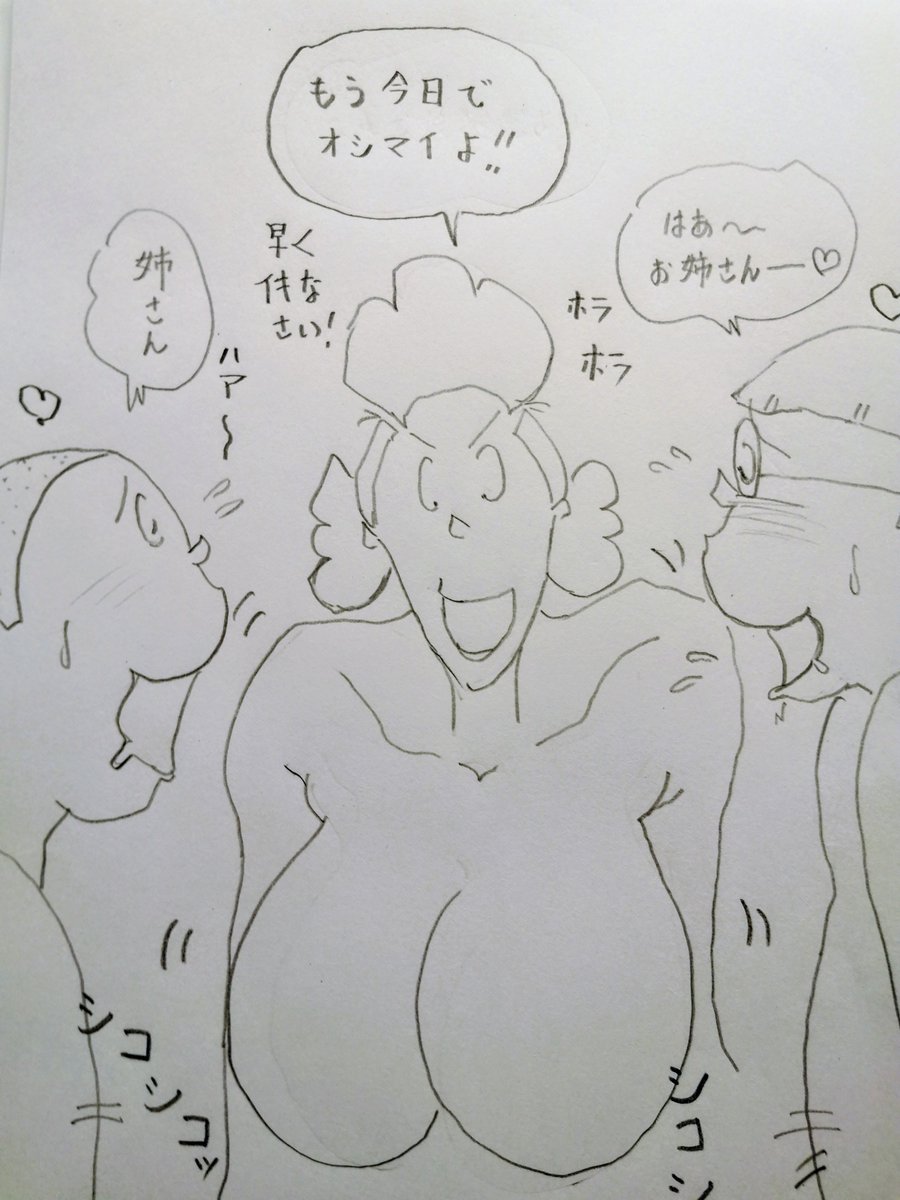 もう今日で
オシマイよ!!
はあ〜〜
お姉さんー♡
ホラ
ホラ
早く
イキな
さい!
姉さん
ハア〜
シコシコッ
シコシ